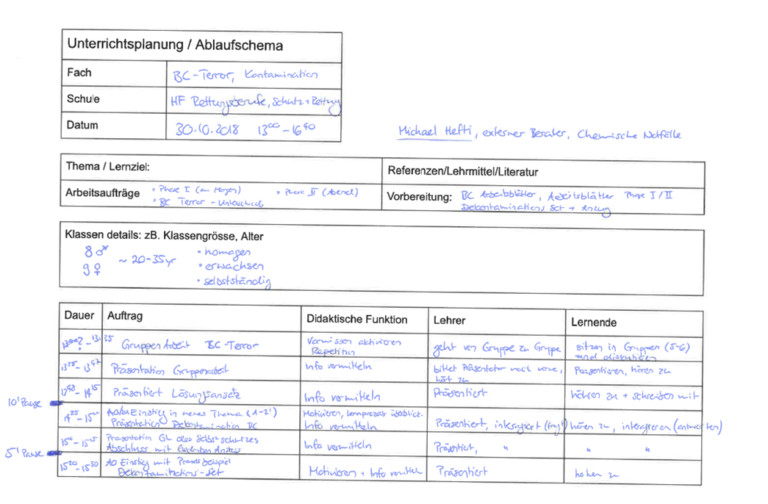 Unterrichtsplanung / Ablaufschema
Fach BC-Terror, Kontamination
Schule HF Rettungsberufe, Schutz + Rettung
Datum 30.10.2018 13⁰⁰ - 16⁴⁰
Michael Hefti, externer Berater, Chemische Notfälle
Thema / Lernziel:
Referenzen/Lehrmittel/Literatur
Arbeitsaufträge • Phase I (am Morgen) • Phase II (Abend)
• BC Terror -
Vorbereitung: BC Arbeitsblätter, Arbeitsblätter Phase I/II
Dekontaminations Set +
Klassen details: zB. Klassengrösse, Alter
8 ♂ • homogen
9 ♀ ~ 20-35yr • erwachsen
• selbstständig
Dauer Auftrag Didaktische Funktion Lehrer Lernende
Gruppen Arbeit BC-Terror
Vorwissen aktivieren
Repetition
geht von Gruppe zu Gruppe
sitzen in Gruppen (5-6)
und diskutieren
Präsentation
Info vermitteln
bittet Präsentator nach vorne,
hört zu
Präsentieren, hören zu
Präsentiert Lösungsansatz
Info vermitteln
Präsentiert
hören zu + schreiben mit
10' Pause
Einstieg in neues Thema (1-2')
Präsentation Dekontamination BC
Motivieren,
Info vermitteln
Präsentiert,
hören zu,
Präsentation des Selbstschutzes
Abschluss mit
Info vermitteln
Präsentiert, " "
5' Pause
Einstieg mit Praxisbeispiel
Dekontaminations-Set
Motivieren + Info vermitteln
Präsentiert
hören zu